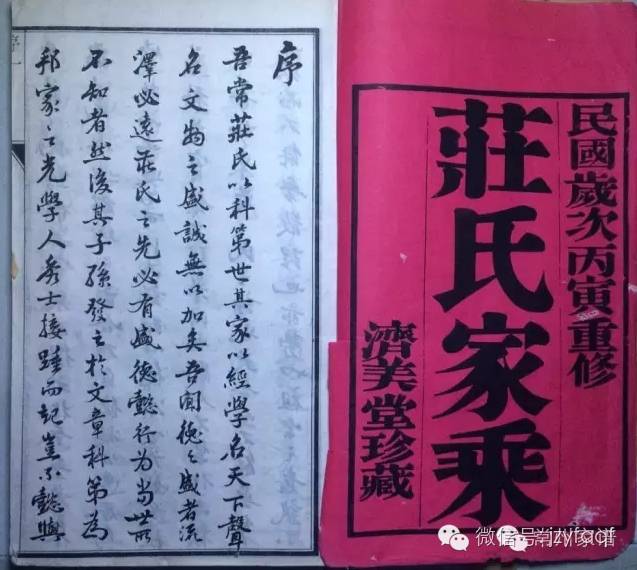 民國歲次丙寅重修
莊氏家乘
濟美堂珍藏
序
吾常莊氏以科第世其家以經學名天下聲
名文物之盛誠無以加矣吾聞德之盛者流
澤必遠莊氏之先必有盛德懿行為當世所
不知者然後其子孫發之於文章科第為
邦家之光學人秀士接踵而起豈不懿與
序一
微信号: jzyfacf